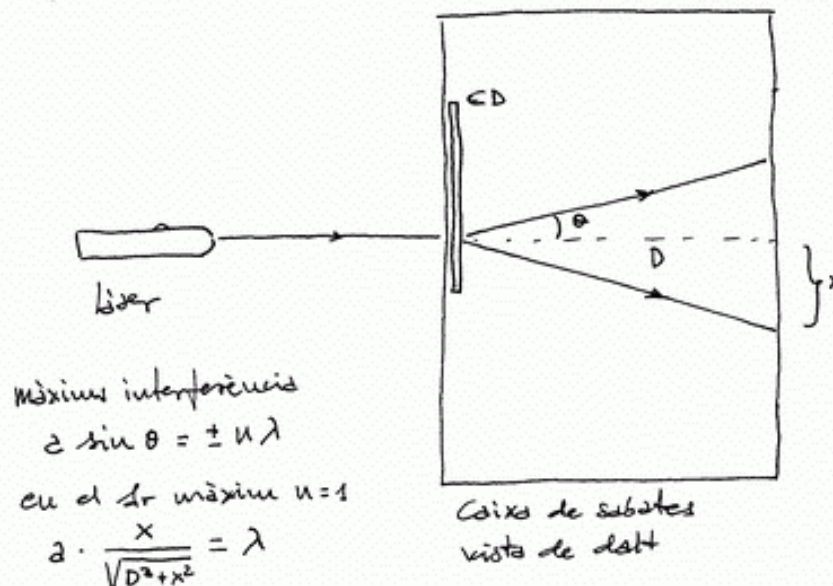 CD
θ
D
x
Làser
màxims interferència
a sin θ = ± n λ
en el 1r màxim n=1
a · x / √(D²+x²) = λ
Caixa de sabates
vista de dalt